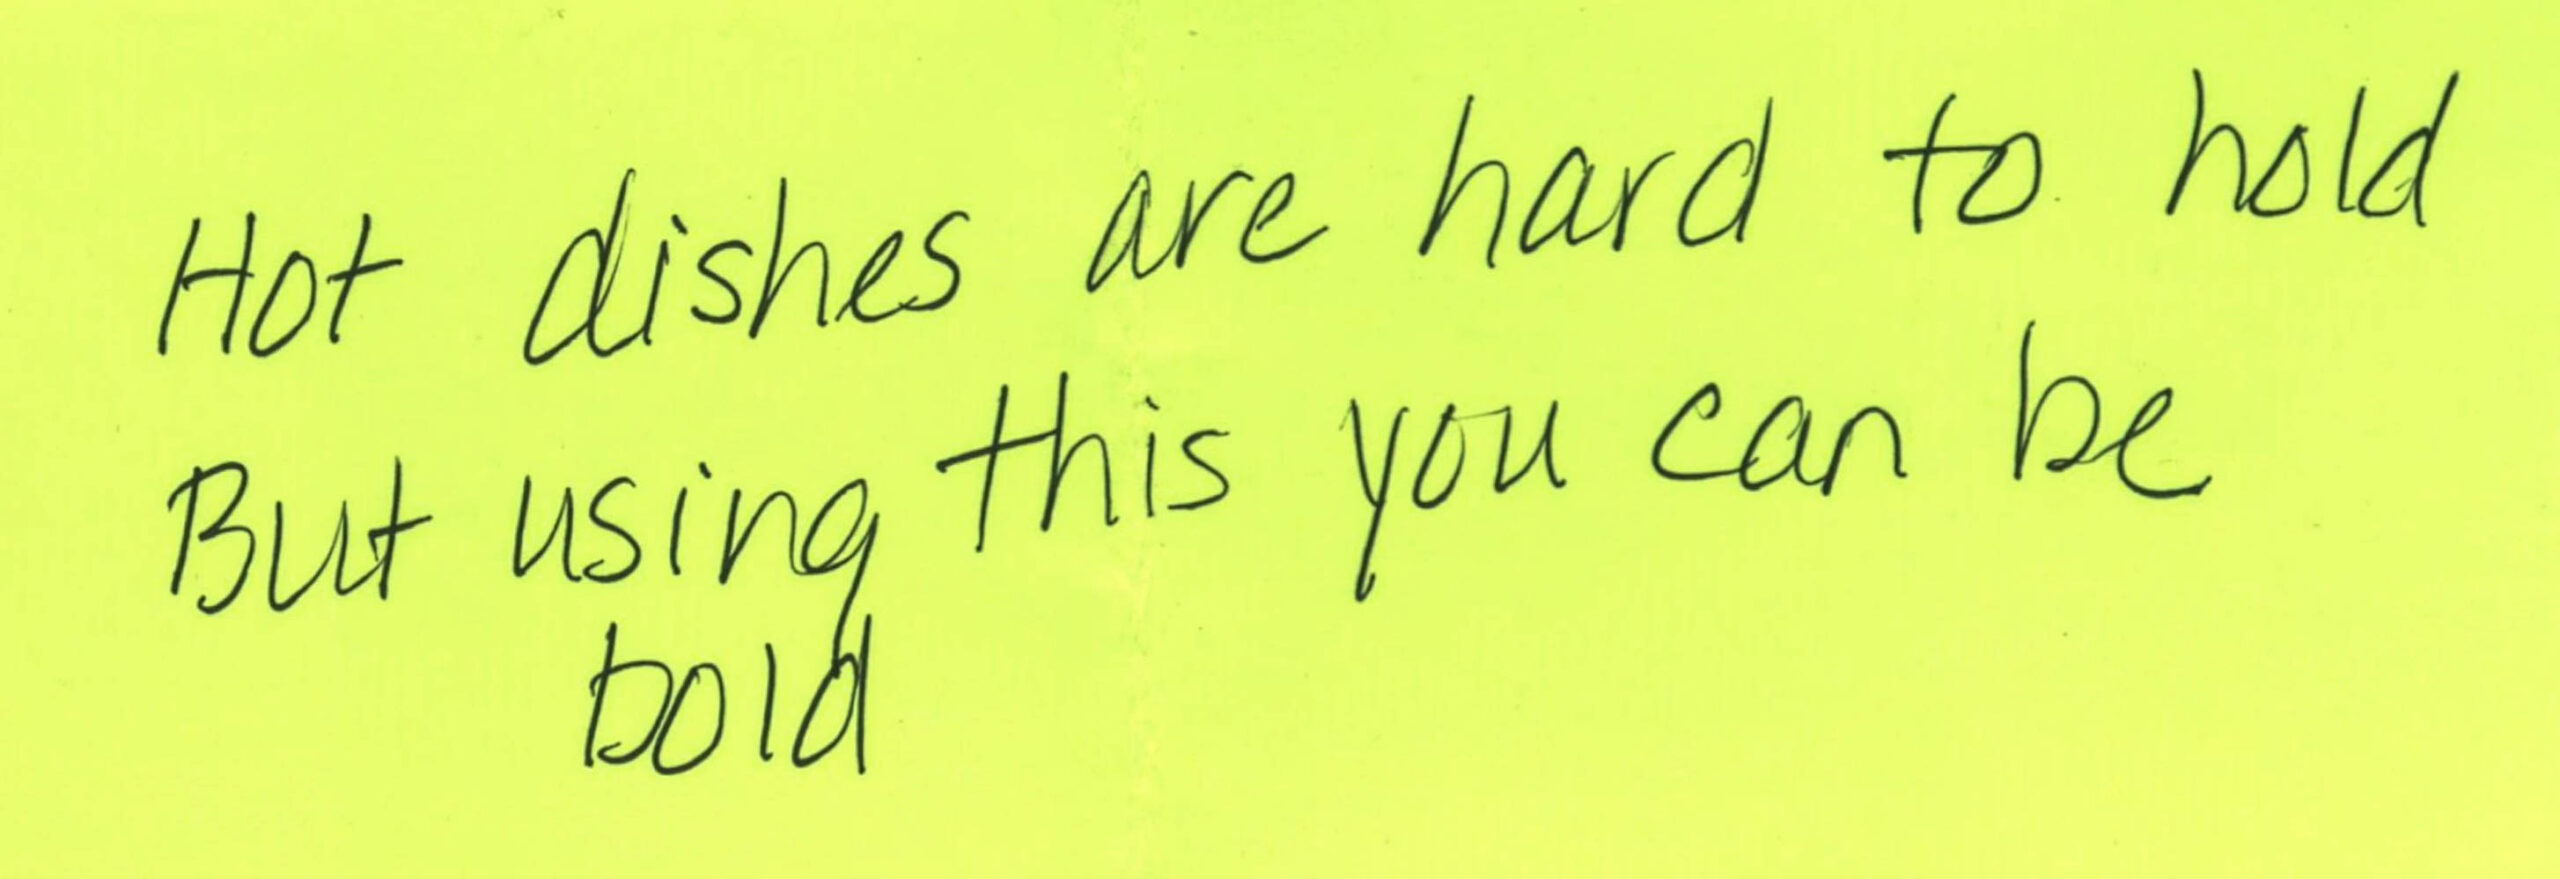 Hot dishes are hard to hold
But using this you can be
bold